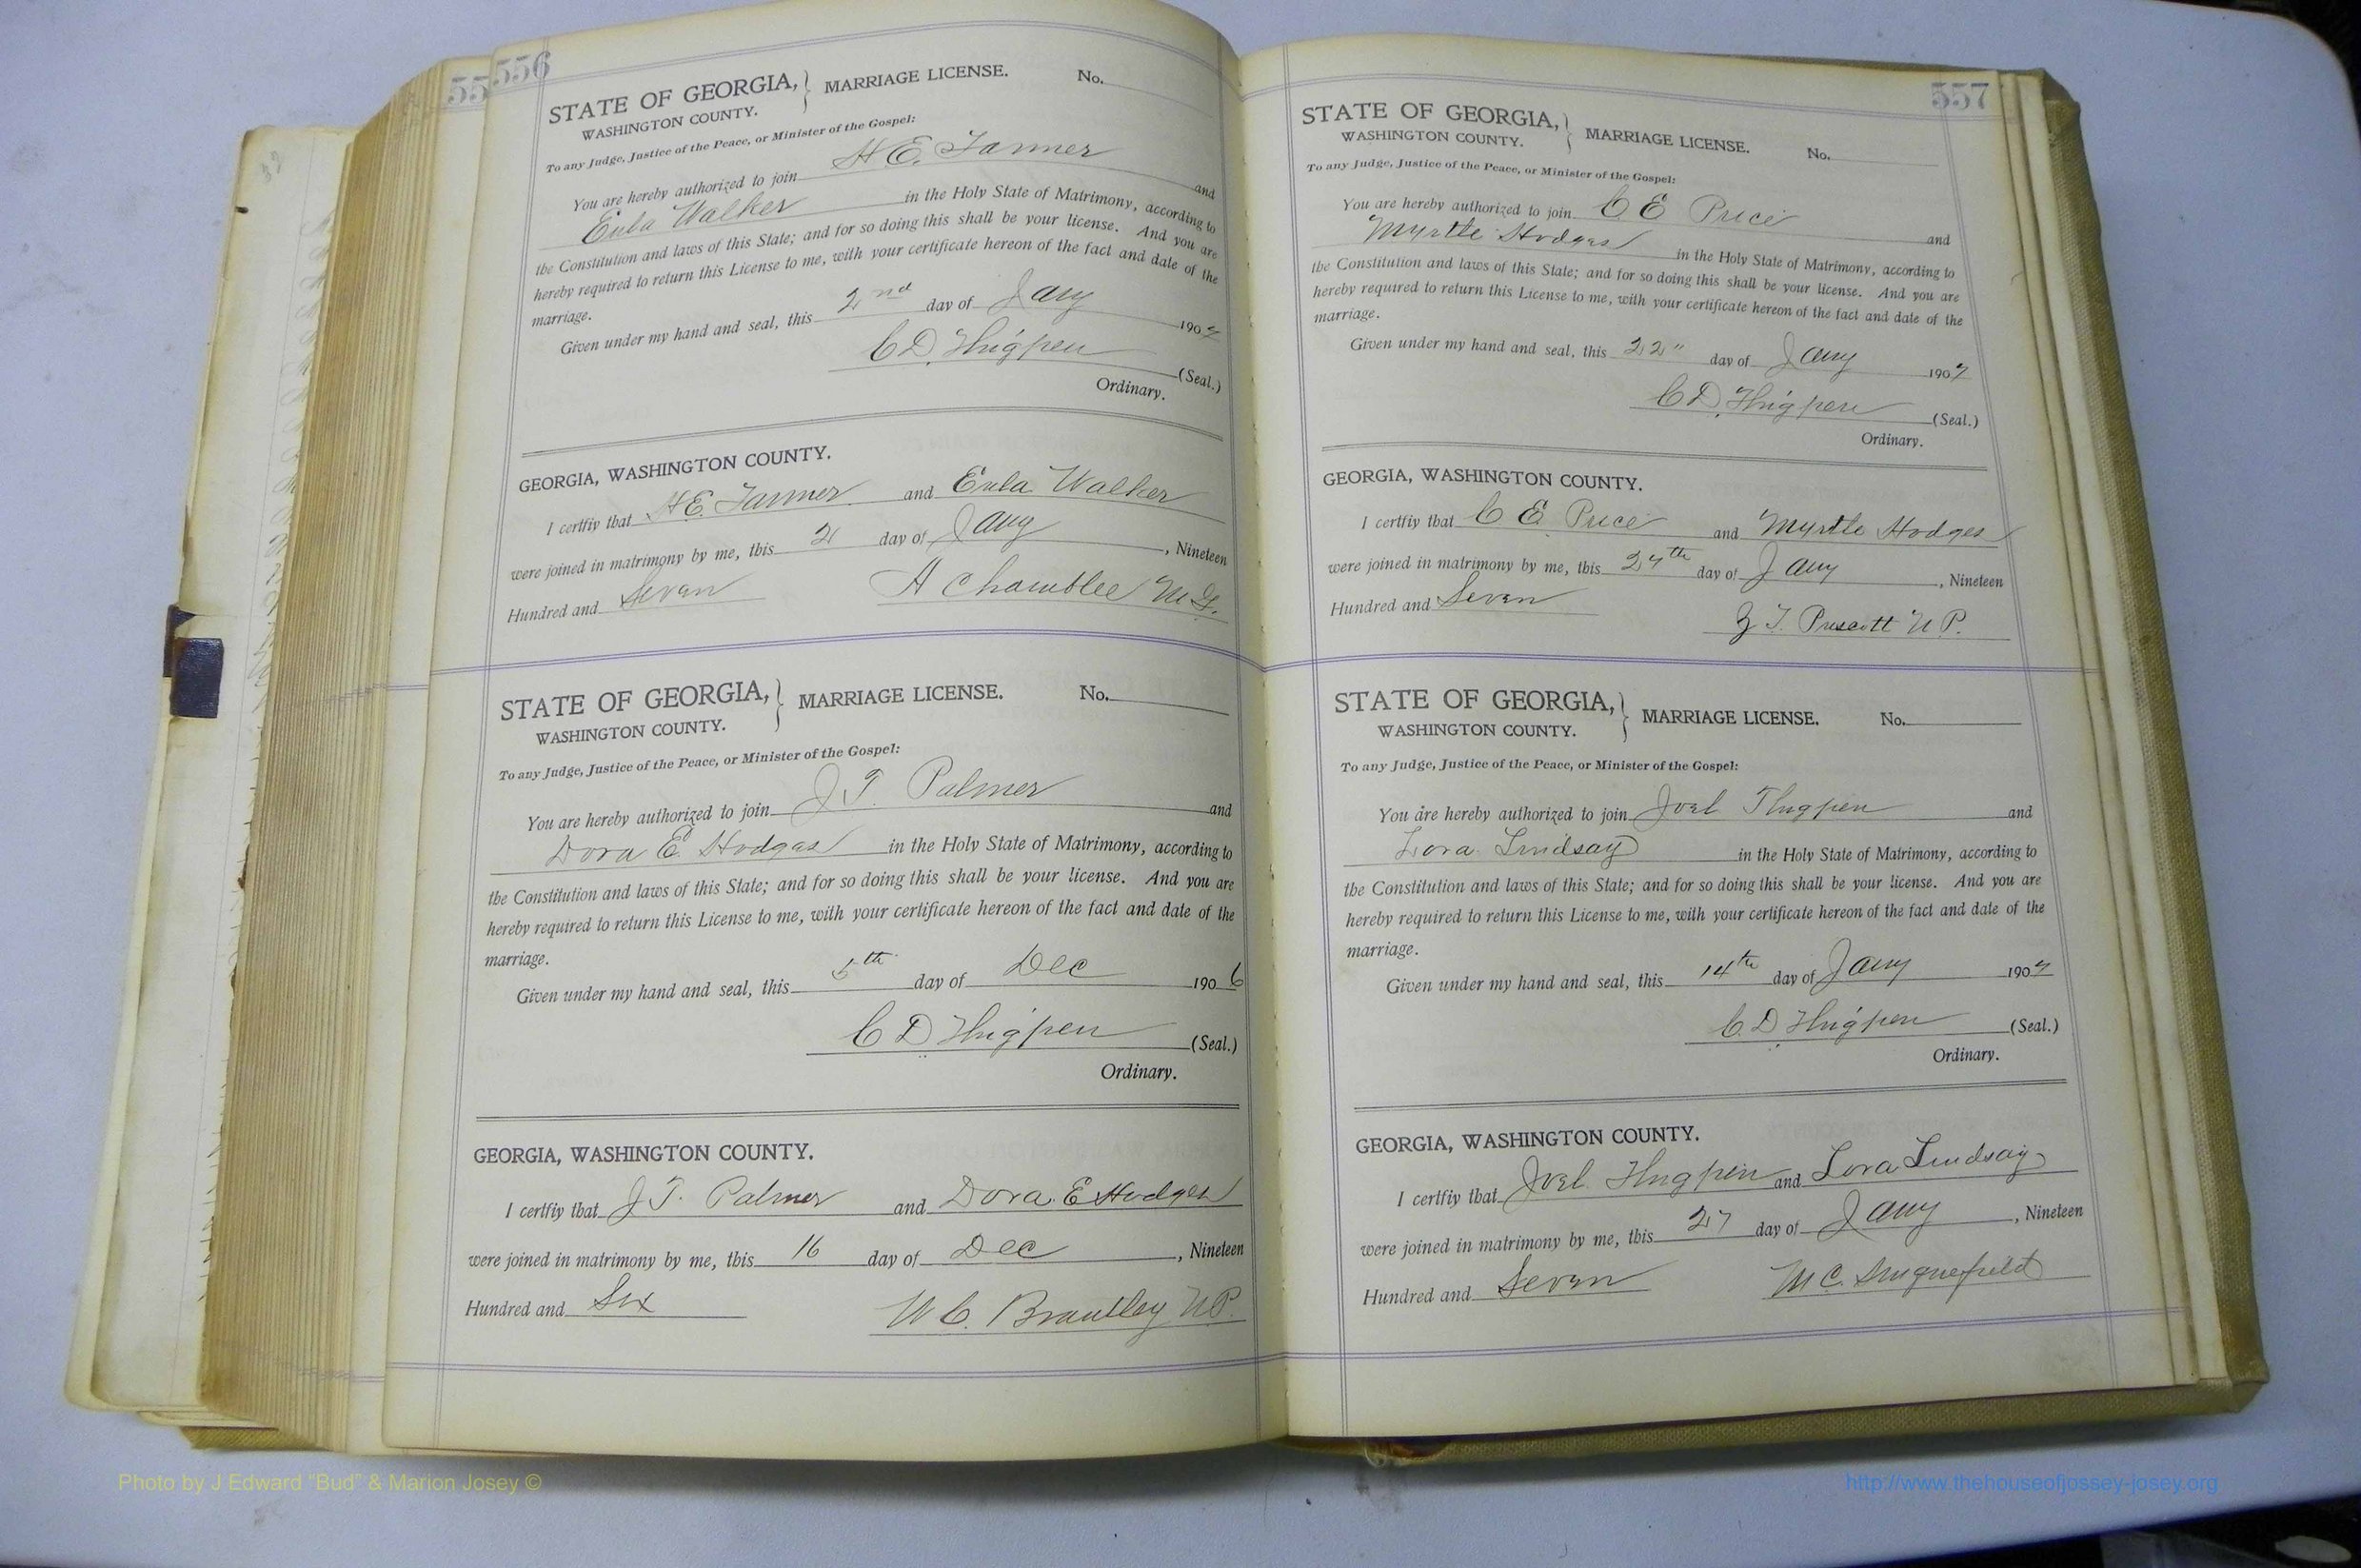 55
556
STATE OF GEORGIA, } MARRIAGE LICENSE. No.
WASHINGTON COUNTY.
To any Judge, Justice of the Peace, or Minister of the Gospel:
You are hereby authorized to join H E. Tanner and
Eula Walker in the Holy State of Matrimony, according to
the Constitution and laws of this State; and for so doing this shall be your license. And you are
hereby required to return this License to me, with your certificate hereon of the fact and date of the
marriage.
Given under my hand and seal, this 2nd day of Jany 1907
C D Thigpen (Seal.)
Ordinary.
GEORGIA, WASHINGTON COUNTY.
I certfiy that H E. Tanner and Eula Walker
were joined in matrimony by me, this 2 day of Jany, Nineteen
Hundred and Seven A Chamblee M.G.
STATE OF GEORGIA, } MARRIAGE LICENSE. No.
WASHINGTON COUNTY.
To any Judge, Justice of the Peace, or Minister of the Gospel:
You are hereby authorized to join J T. Palmer and
Dora E. Hodges in the Holy State of Matrimony, according to
the Constitution and laws of this State; and for so doing this shall be your license. And you are
hereby required to return this License to me, with your certificate hereon of the fact and date of the
marriage.
Given under my hand and seal, this 5th day of Dec 1906
C D Thigpen (Seal.)
Ordinary.
GEORGIA, WASHINGTON COUNTY.
I certfiy that J T. Palmer and Dora E Hodges
were joined in matrimony by me, this 16 day of Dec, Nineteen
Hundred and Six W C. Brantley N.P.
557
STATE OF GEORGIA, } MARRIAGE LICENSE. No.
WASHINGTON COUNTY.
To any Judge, Justice of the Peace, or Minister of the Gospel:
You are hereby authorized to join C E Price and
Myrtle Hodges in the Holy State of Matrimony, according to
the Constitution and laws of this State; and for so doing this shall be your license. And you are
hereby required to return this License to me, with your certificate hereon of the fact and date of the
marriage.
Given under my hand and seal, this 22" day of Jany 1907
C D Thigpen (Seal.)
Ordinary.
GEORGIA, WASHINGTON COUNTY.
I certfiy that C E Price and Myrtle Hodges
were joined in matrimony by me, this day of Jany, Nineteen
Hundred and Seven Z T. Prescott N P.
STATE OF GEORGIA, } MARRIAGE LICENSE. No.
WASHINGTON COUNTY.
To any Judge, Justice of the Peace, or Minister of the Gospel:
You are hereby authorized to join Joel Thigpen and
Lora Lindsay in the Holy State of Matrimony, according to
the Constitution and laws of this State; and for so doing this shall be your license. And you are
hereby required to return this License to me, with your certificate hereon of the fact and date of the
marriage.
Given under my hand and seal, this 14th day of Jany 1907
C. D Thigpen (Seal.)
Ordinary.
GEORGIA, WASHINGTON COUNTY.
I certfiy that Joel Thigpen and Lora Lindsay
were joined in matrimony by me, this 27 day of Jany, Nineteen
Hundred and Seven M C. Singuefield
Photo by J Edward "Bud" & Marion Josey ©
http://www.thehouseofjossey-josey.org